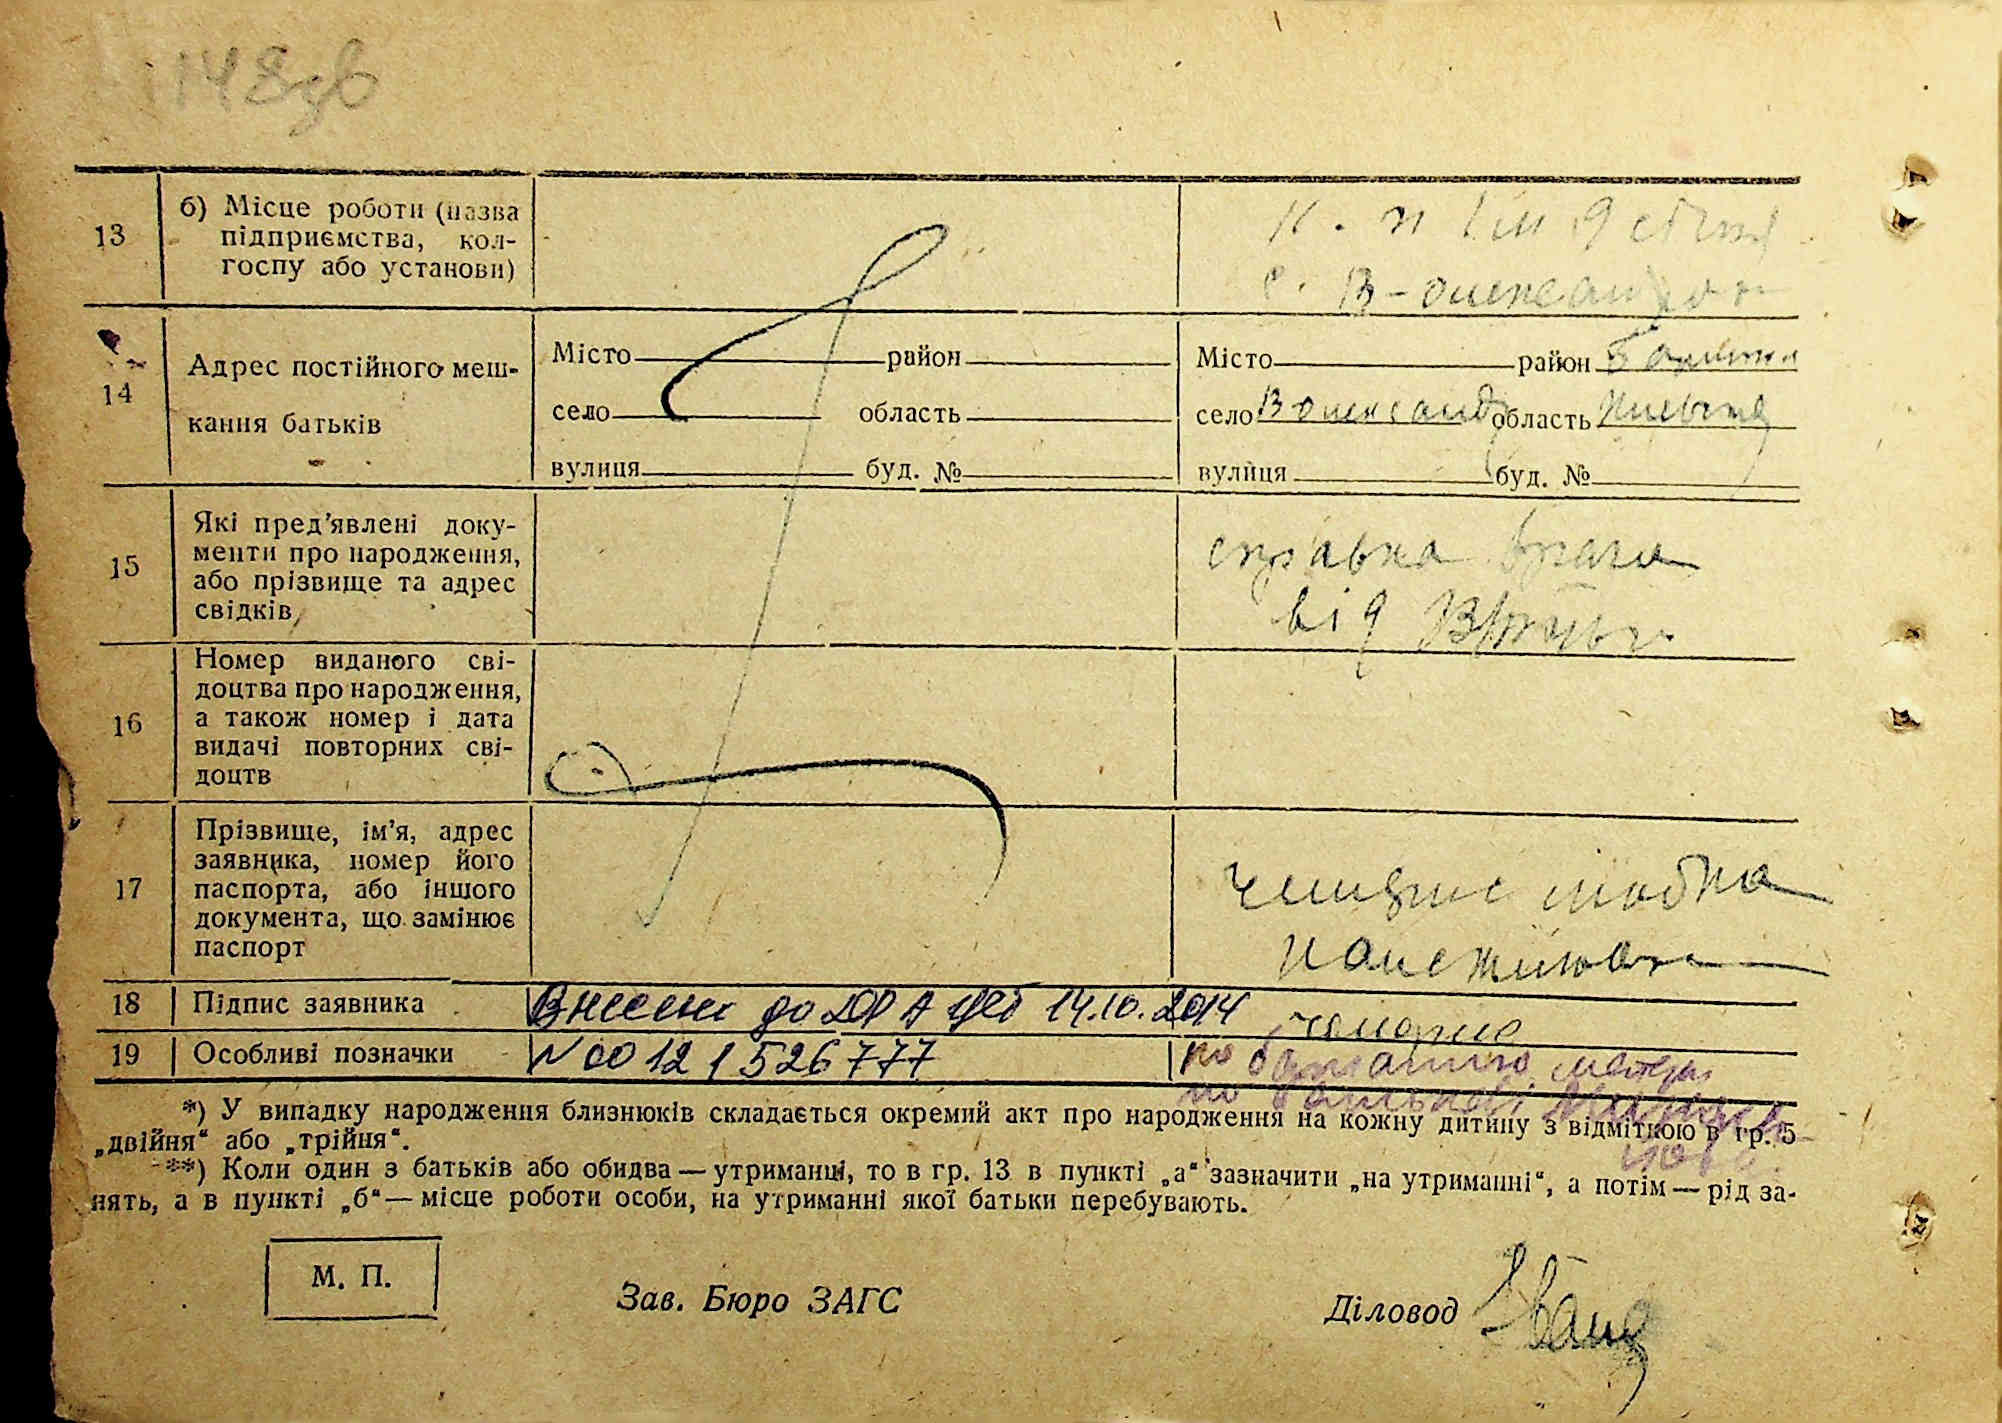 148зв
13
б) Місце роботи (назва
підприємства, кол-
госпу або установи)
с. В-олександров
14
Адрес постійного меш-
кання батьків
Місто район
село область
вулиця буд. №
Місто район
село В олександ область Київська
вулиця буд. №
15
Які пред'явлені доку-
менти про народження,
або прізвище та адрес
свідків
справка врача
від
16
Номер виданого сві-
доцтва про народження,
а також номер і дата
видачі повторних сві-
доцтв
17
Прізвище, ім'я, адрес
заявника, номер його
паспорта, або іншого
документа, що замінює
паспорт
18 Підпис заявника
Внесено до ДРАЦС 14.10.2014
19 Особливі позначки
N 00121526777
по матери
по
*) У випадку народження близнюків складається окремий акт про народження на кожну дитину з відміткою в гр. 5
„двійня“ або „трійня“.
**) Коли один з батьків або обидва — утриманці, то в гр. 13 в пункті „а“ зазначити „на утриманні“, а потім — рід за-
нять, а в пункті „б“ — місце роботи особи, на утриманні якої батьки перебувають.
М. П.
Зав. Бюро ЗАГС
Діловод